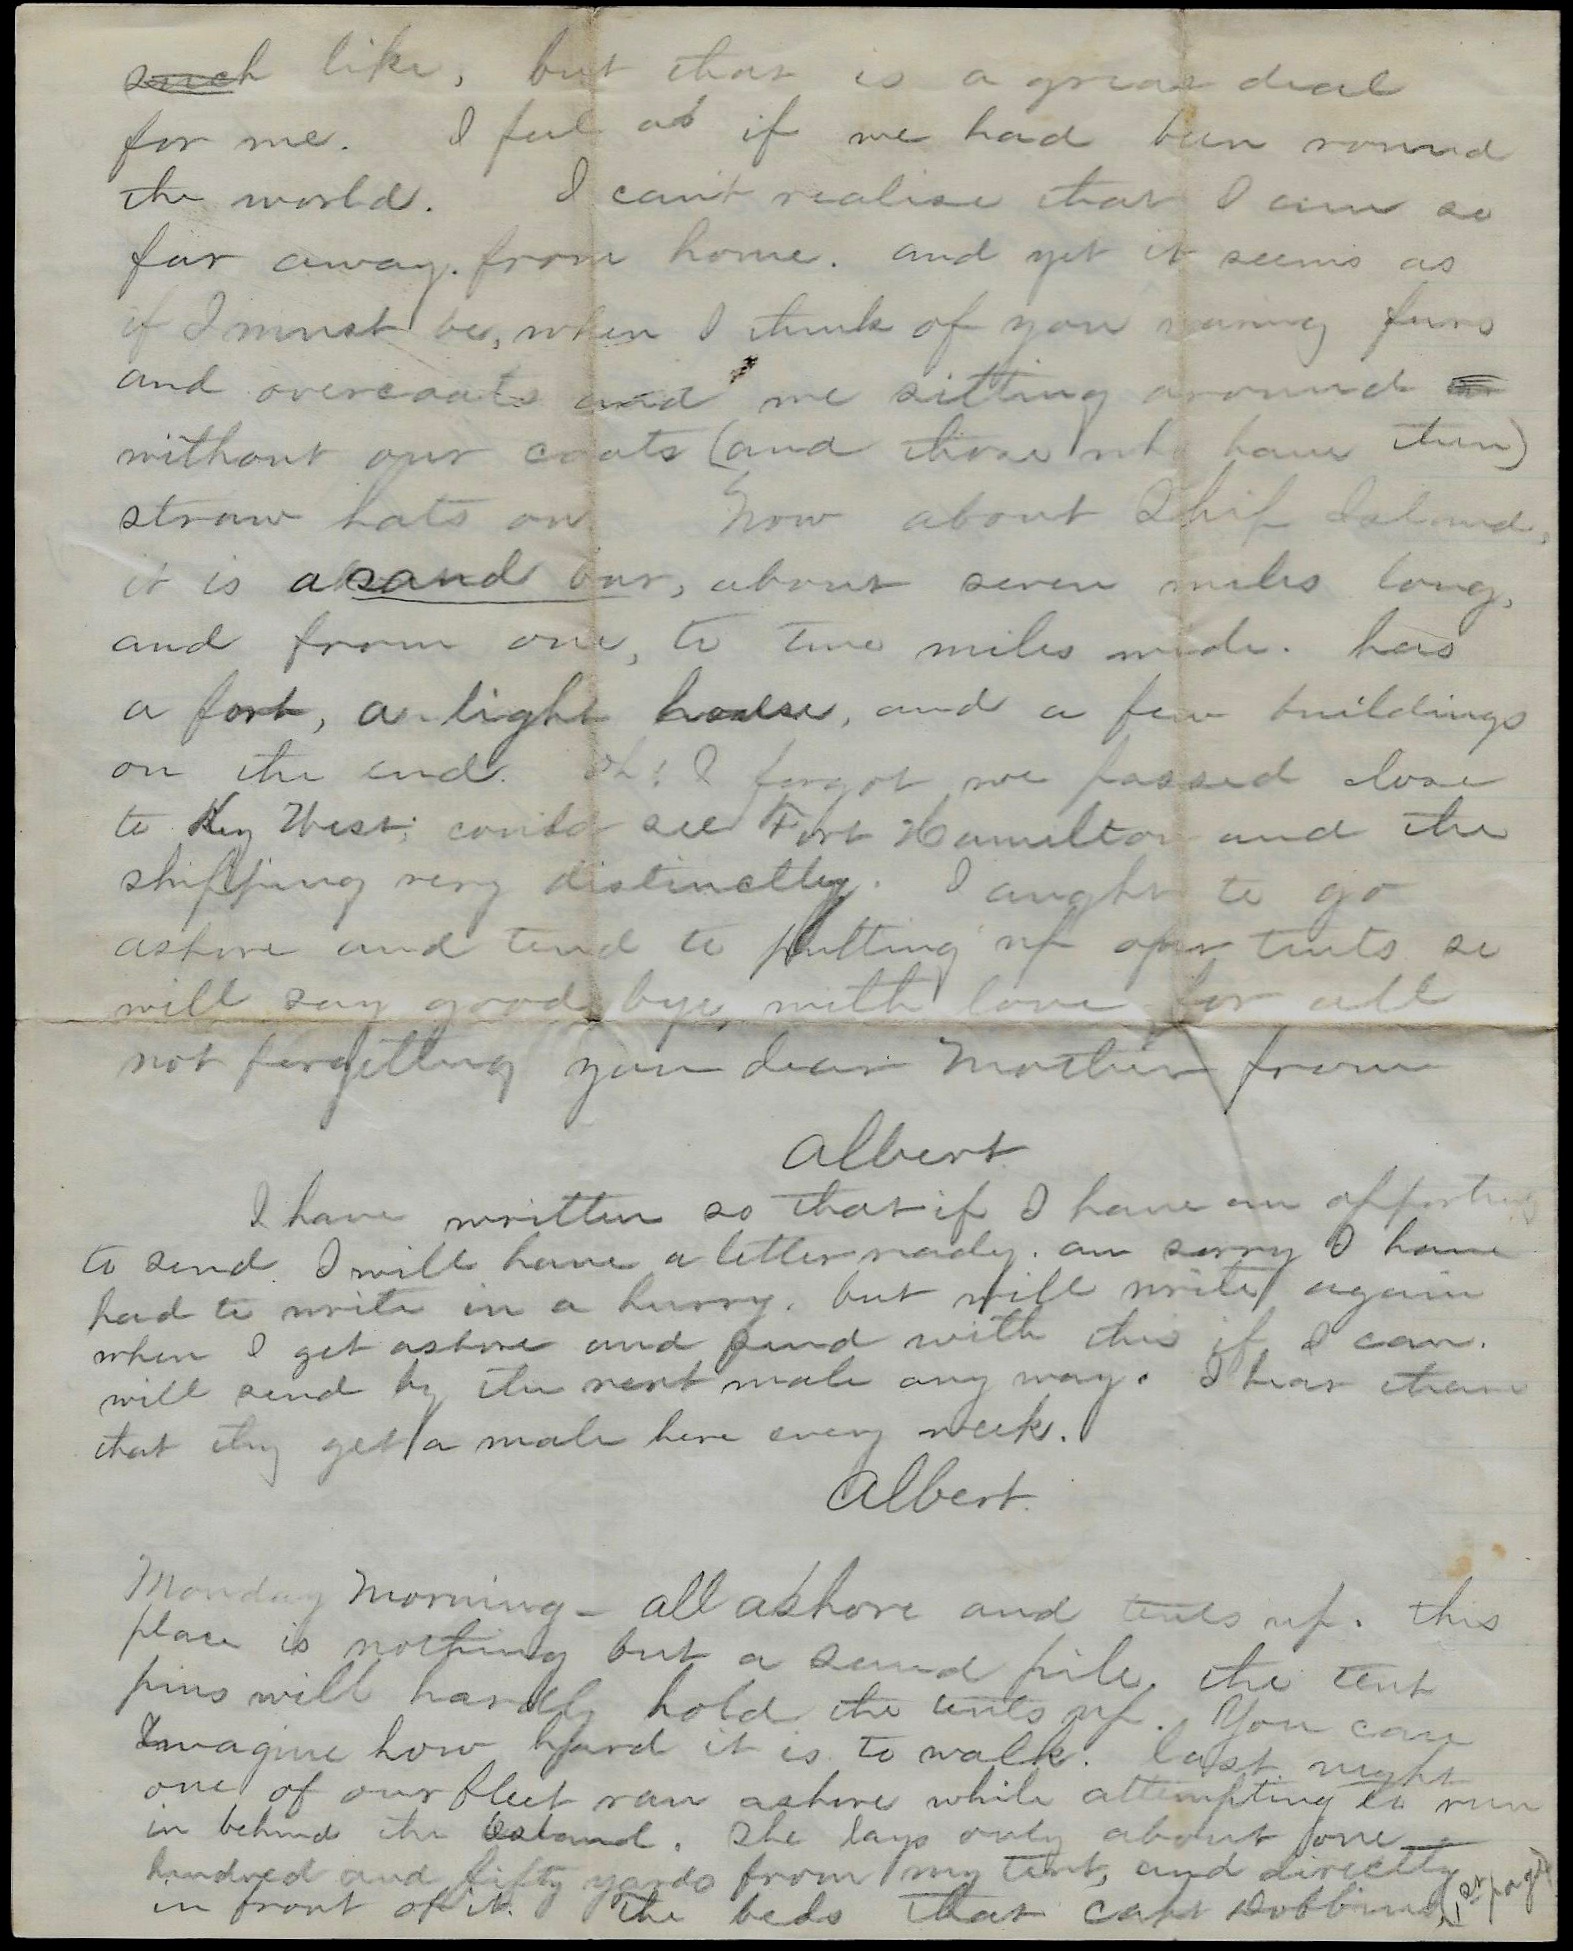 such like, but that is a great deal
for me. I feel as if we had been round
the world. I can't realise that I am so
far away. from home. and yet it seems as
if I must be, when I think of you waring furs
and overcoats and we sitting around
without our coats (and those who have them)
straw hats on Now about Ship Island,
it is a sand bar, about seven miles long,
and from one, to two miles wide. has
a fort, a light house, and a few buildings
on the end. Oh! I forgot we passed close
to Key West; could see Fort Hamilton and the
shipping very distinctly. I aught to go
ashore and tend to putting up our tents so
will say good bye, with love for all
not forgetting you dear Mother from
Albert
I have written so that if I have an opportuny
to send I will have a letter ready. am sorry I have
had to write in a hurry. but will write again
when I get ashore and send with this if I can.
will send by the next male any way. I hear
that they get a male here every week.
Albert.
Monday Morning - all ashore and tents up. this
place is nothing but a sand pile. the tent
pins will hardly hold the tents up. You can
Imagine how hard it is to walk. last night
one of our fleet ran ashore while attempting to run
in behind the Island. She lays only about one
hundred and fifty yards from my tent, and directly
in front of it. The beds that capt Dobbins
1st page